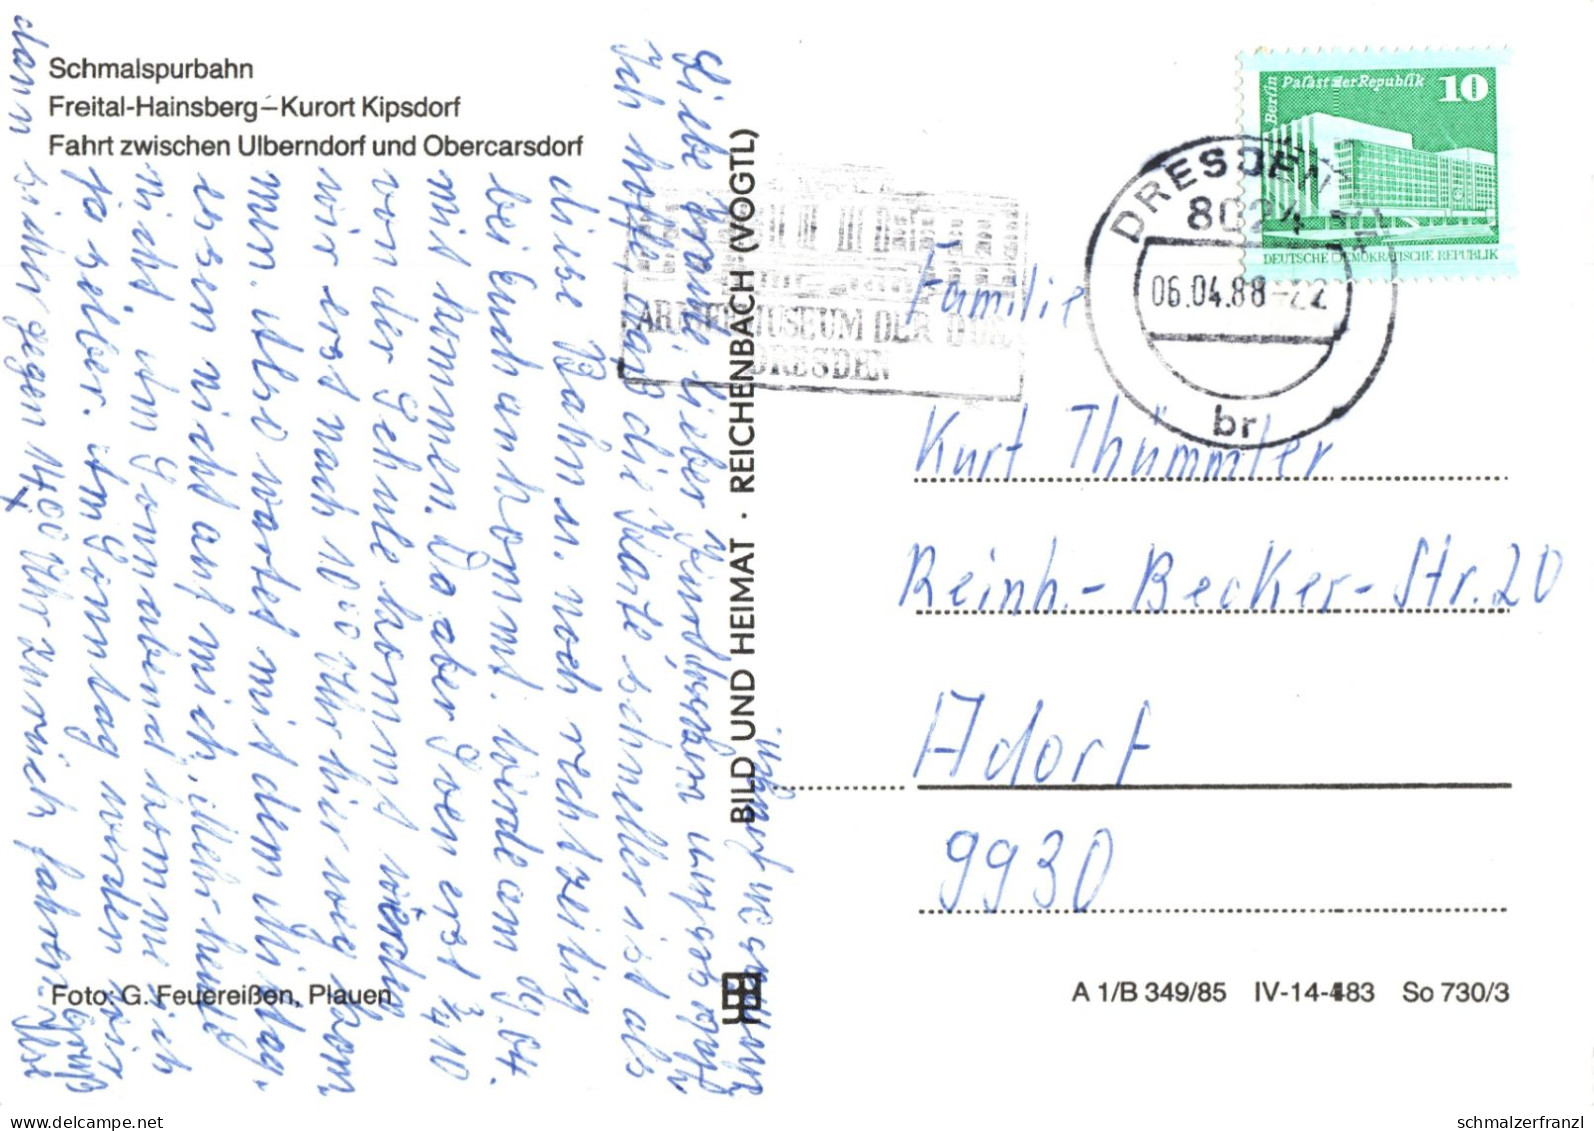 Schmalspurbahn
Freital-Hainsberg–Kurort Kipsdorf
Fahrt zwischen Ulberndorf und Obercarsdorf
Liebe Frau, lieber
Ich hoffe, daß die Karte schneller ist als
diese Bahn u. noch rechtzeitig
bei Euch ankommt. Würde am 9.04.
mit kommen. Da aber Sven erst ¾ 10
von der Schule kommt würde
wir erst nach 10°° Uhr hier weg kom
men. Also wartet mit dem Mittag-
essen nicht auf mich. Mehr heute
nicht. Am Sonnabend komme ich
ja selber. Am Sonntag würden wir
dann sicher gegen 14°° Uhr zurück fahren.
Gruß
BILD UND HEIMAT · REICHENBACH (VOGTL)
Berlin Palast der Republik 10
DEUTSCHE DEMOKRATISCHE REPUBLIK
DRESDEN
8024
06.04.88-22
br
ARMEEMUSEUM DER DDR
DRESDEN
Familie
Kurt Thümmler
Reinh.-Becker-Str. 20
Adorf
9930
Foto: G. Feuereißen, Plauen
A 1/B 349/85 IV-14-483 So 730/3
schmalzerfranzl